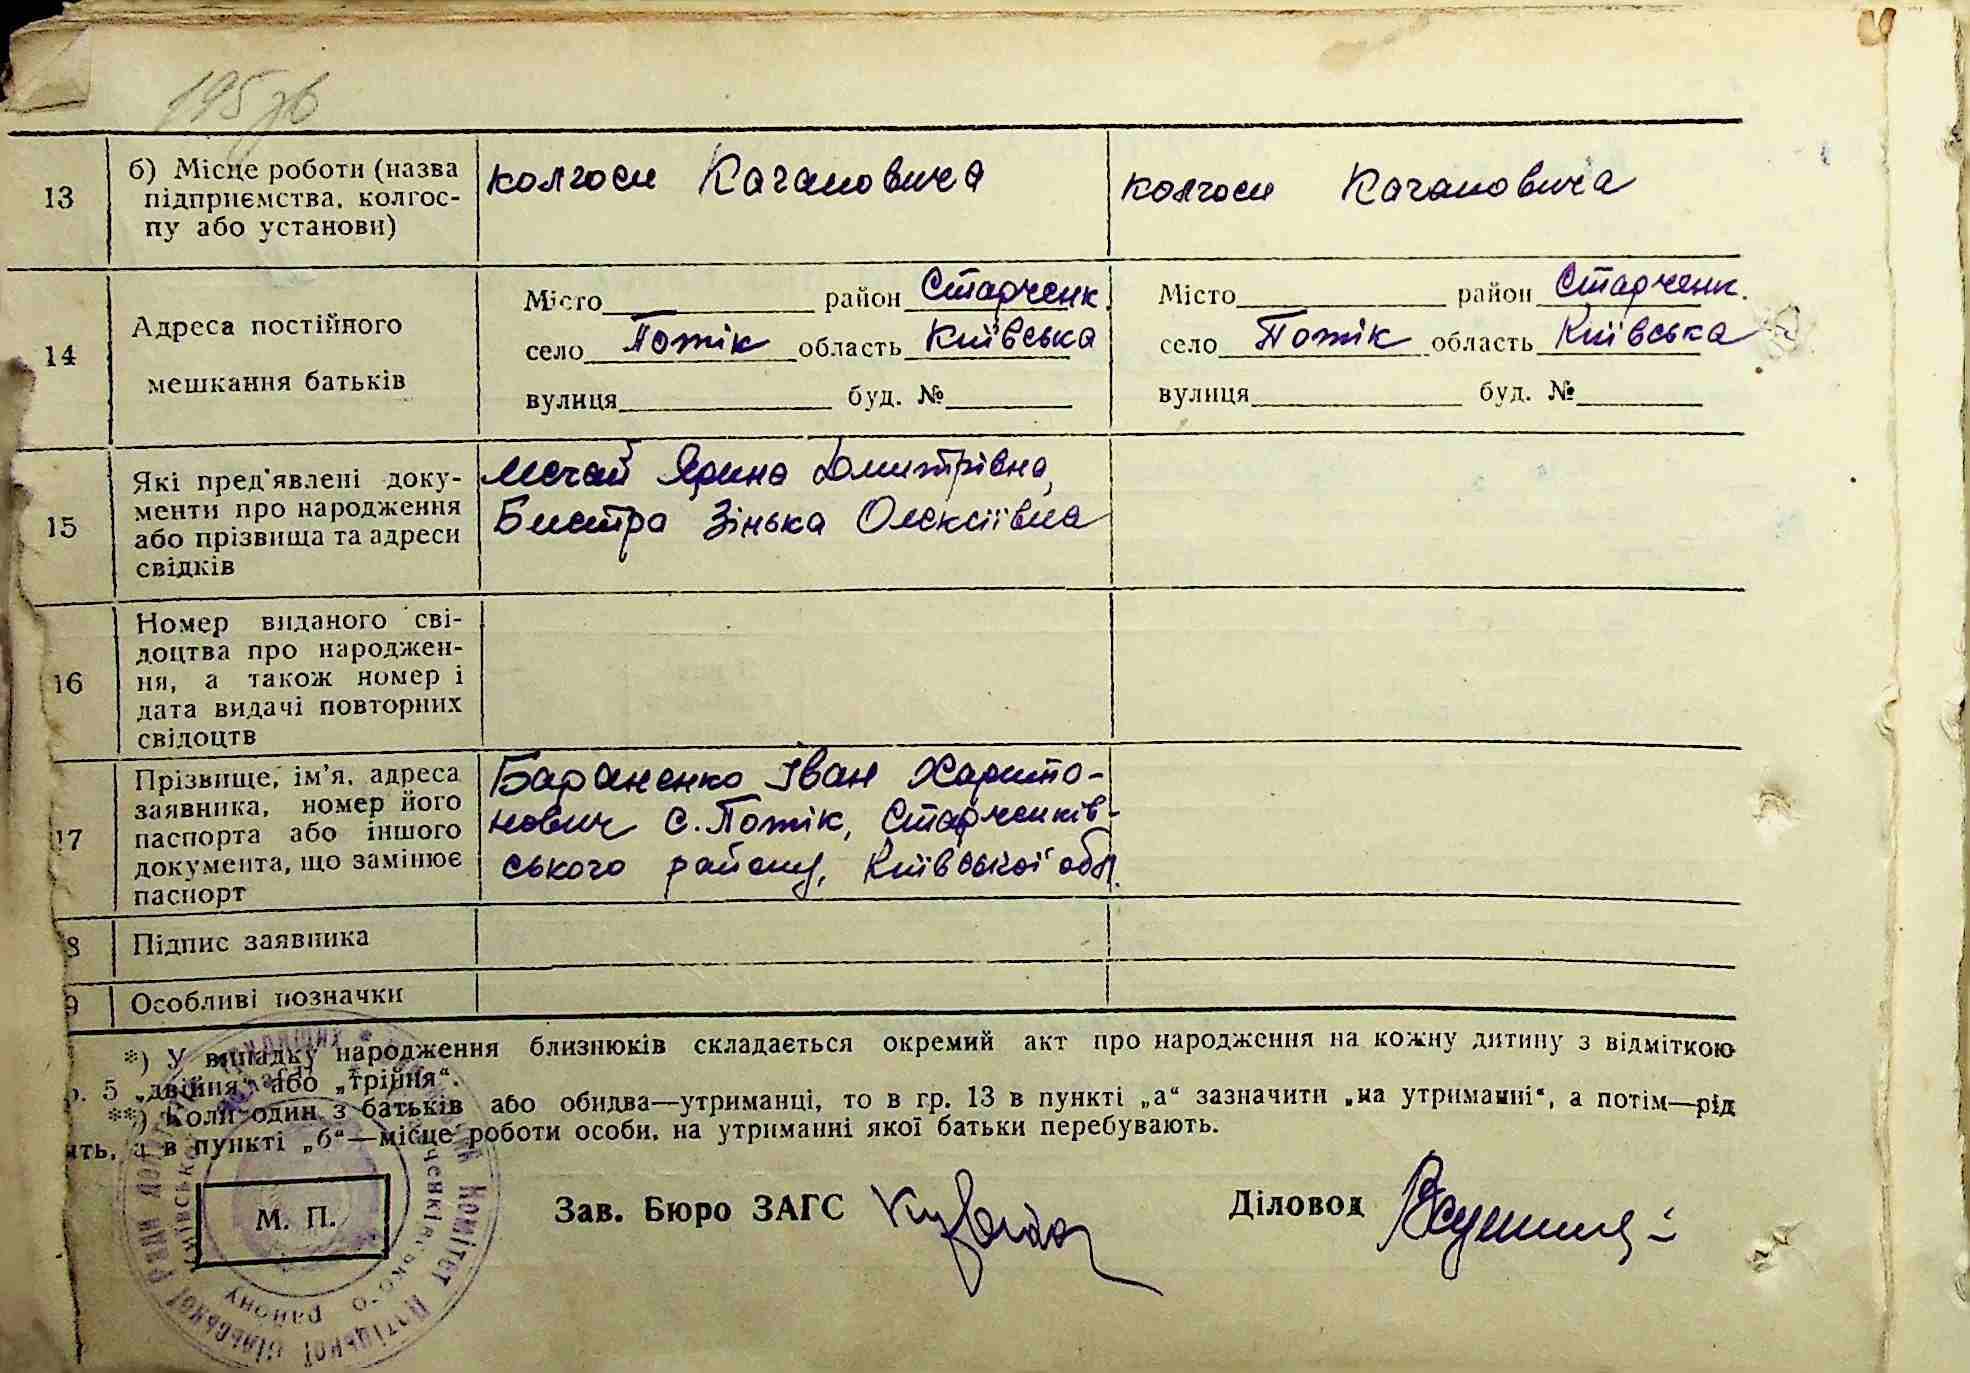 195 зв
13
б) Місце роботи (назва
підприємства, колгос-
пу або установи)
колгосп Кагановича
колгосп Кагановича
14
Адреса постійного
мешкання батьків
Місто район Старченк.
село Потік область Київська
вулиця буд. №
Місто район Старченк.
село Потік область Київська
вулиця буд. №
15
Які пред'явлені доку-
менти про народження
або прізвища та адреси
свідків
Мочай Ярина Дмитрівна,
Бистра Зінька Олексіївна
16
Номер виданого сві-
доцтва про народжен-
ня, а також номер і
дата видачі повторних
свідоцтв
17
Прізвище, ім'я, адреса
заявника, номер його
паспорта або іншого
документа, що замінює
паспорт
Бараненко Іван Харито-
нович с. Потік, Старченків-
ського району, Київської обл.
8
Підпис заявника
9
Особливі позначки
*) У випадку народження близнюків складається окремий акт про народження на кожну дитину з відміткою
р. 5 „двійня" або „трійня".
**) Коли один з батьків або обидва—утриманці, то в гр. 13 в пункті „а" зазначити „на утриманні", а потім—рід
ять, а в пункті „б"—місце роботи особи, на утриманні якої батьки перебувають.
М. П.
Зав. Бюро ЗАГС
Діловод
Комітет Потіцької сільської ради
району